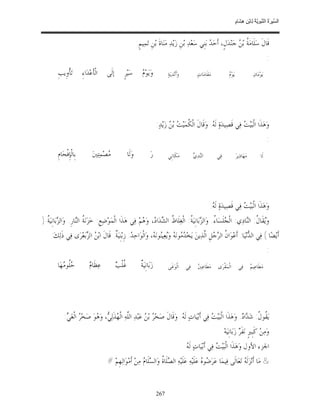 السّيرَة النّبَويّة لابْن هشام
قَالَ سَلَامَةُ بْنُ جَنْدَلٍ، أَحَدُ بَنِي سَعْدِ بْنِ زَيْدِ مَنَاةَ بْنِ تَمِيمٍ
:
يَوْمَانِ يَوْمُ مَقَامَاتٍ وَأَنْدِيَةٍ وَيَوْمُ سَيْرٍ إلَى الْأَعْدَاءِ تَأْوِيبِ
.
وَهَذَا الْبَيْتُ فِي قَصِيدَةٍ لَهُ. وَقَالَ الْكُمَيْتُ بْنُ زَيْدٍ
:
لَا مَهَاذِيرَ فِي النَّدِيِّ مَكَاثِيرَ وَلَا مُصْمِتِينَ بِالْإِفْحَامِ
.
وَهَذَا الْبَيْتُ فِي قَصِيدَةٍ لَهُ.
وَيُقَالُ: النَّادِي: الْجُلَسَاءُ. وَالزَّبَانِيَةُ: الْغِلَاظُ الشِّدَادُ، وَهُمْ فِي هَذَا الْمَوْضِعِ: خَزَنَةُ النَّارِ. وَالزَّبَانِيَةُ (
أَيْضًا ) فِي الدُّنْيَا: أَعْوَانُ الرَّجُلِ الَّذِينَ يَخْدُمُونَهُ وَيُعِينُونَهُ، وَالْوَاحِدُ: زِبْنِيَةٌ. قَالَ ابْنُ الزِّبَعْرَى فِي ذَلِكَ
:
مَطَاعِيمُ فِي الْمَقْرَى مَطَاعِينُ فِي الْوَغَى زَبَانِيَةٌ غُلْبٌ عِظَامٌ حُلُومُهَا
.
يَقُولُ: شِدَادٌ. وَهَذَا الْبَيْتُ فِي أَبْيَاتٍ لَهُ. وَقَالَ صَخْرُ بْنُ عَبْدِ اللَّهِ الْهُذَلِيُّ، وَهُوَ صَخْرُ الْغَيِّ
وَمِنْ كَبِيرٍ نَفَرٌ زَبَانِيَهْ
الجزء الأول وَهَذَا الْبَيْتُ فِي أَبْيَاتٍ لَهُ
& مَا أَنْزَلَهُ تَعَالَى فِيمَا عَرَضُوهُ عَلَيْهِ عَلَيْهِ الصَّلَاةُ وَالسَّلَامُ مِنْ أَمْوَالِهِمْ #
267